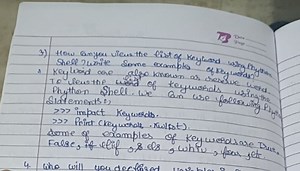 3) How can you view the list of keyword using Phython
shell? write some examples of keywords.
Keyword are also known as reserve word.
To view the word of keywords using the
Phython shell we can use following
Statements:
>>> impact keywords.
>>> Print (keywords. kwlist)
Some of examples of keywords are
False, if elif, else, while, for, etc
4. who will you declared